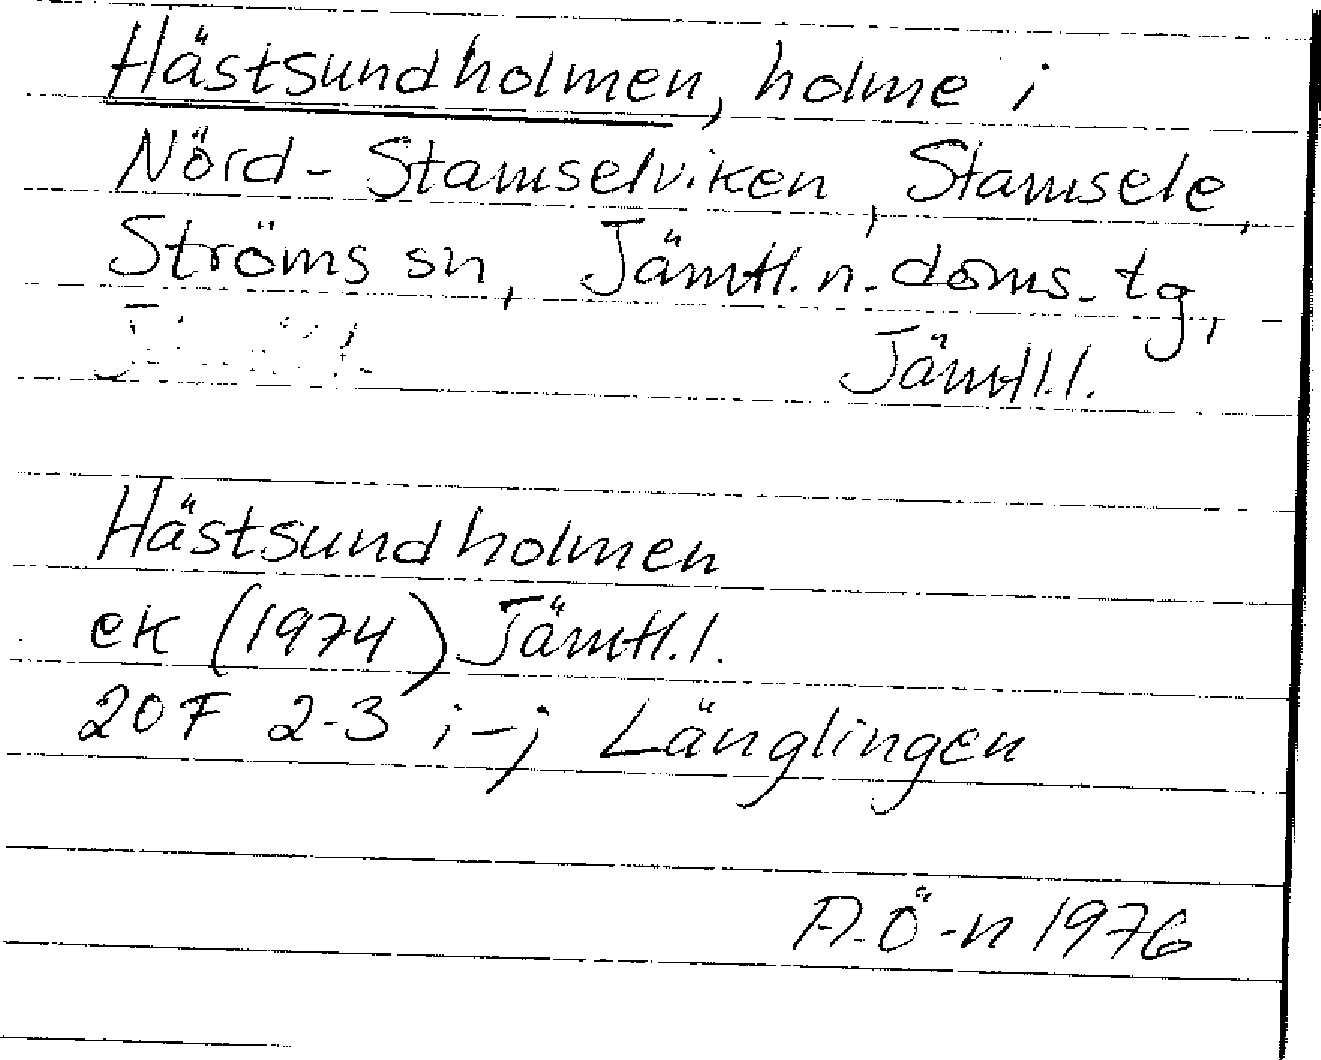 Hästsundholmen, holme i
Nörd-Stamselviken, Stamsele,
Ströms sn, Jämtl. n. doms. tg,
Jämtl. l.
Hästsundholmen
ek (1974) Jämtl. l.
20 F 2-3 i-j Länglingen
A.Ö-n 1976